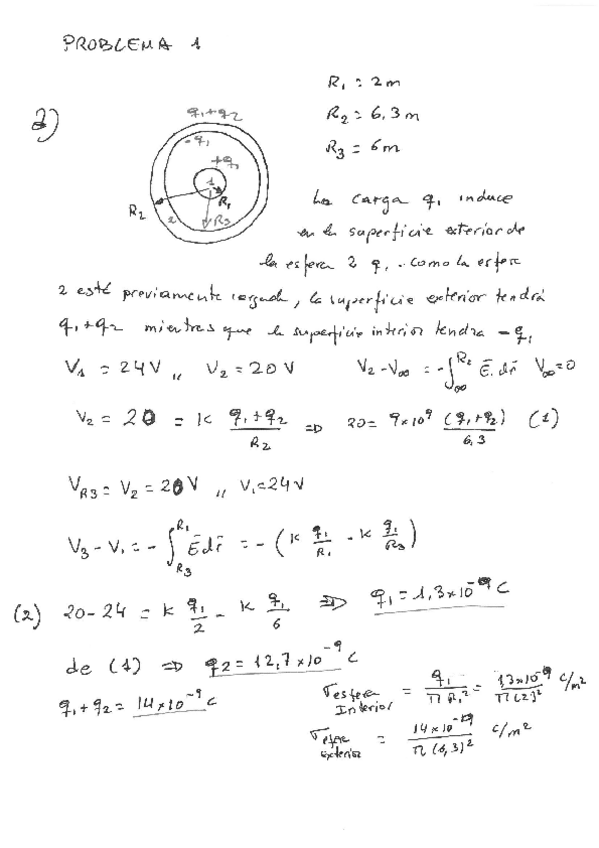 PROBLEMA 1
R₁ = 2m
R₂ = 6,3m
R₃ = 6m
2)
q₁+q₂
-q₁
+q₁
1
R₁
R₂
2
R₃
La carga q₁ induce
en la superficie exterior de
la esfera 2 q₁. Como la esfera
2 esté previamente cargada, la superficie exterior tendrá
q₁+q₂ mientras que la superficie interior tendrá -q₁
V₁ = 24V ,, V₂ = 20V V₂-V∞ = -∫_∞^R₂ E̅.dr̅ V∞=0
V₂ = 20 = K (q₁+q₂)/R₂ ⇒ 20 = 9×10⁹ (q₁+q₂)/6,3 (1)
V_R3 = V₂ = 20V ,, V₁=24V
V₃-V₁ = -∫_R₃^R₁ E̅dr̅ = -(K q₁/R₁ - K q₁/R₃)
(2) 20-24 = K q₁/2 - K q₁/6 ⇒ q₁ = 1,3×10⁻⁹ C
de (1) ⇒ q₂ = 12,7×10⁻⁹ C
q₁+q₂ = 14×10⁻⁹ C
σ esfera Interior = q₁/(π R₁²) = 1,3×10⁻⁹/(π(2)²) C/m²
σ esfera exterior = 14×10⁻⁹/(π(6,3)²) C/m²